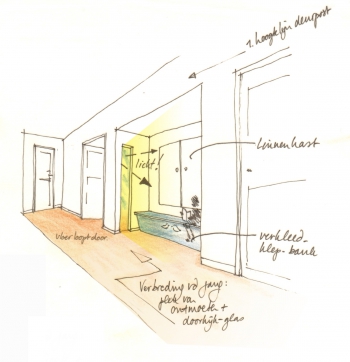 1. hooglijn deurpost
licht!
linnenkast
vloer loopt door
verkleed-
klep-bank
Verbreding vd gang:
plek van
ontmoeten +
doorkijk-glas